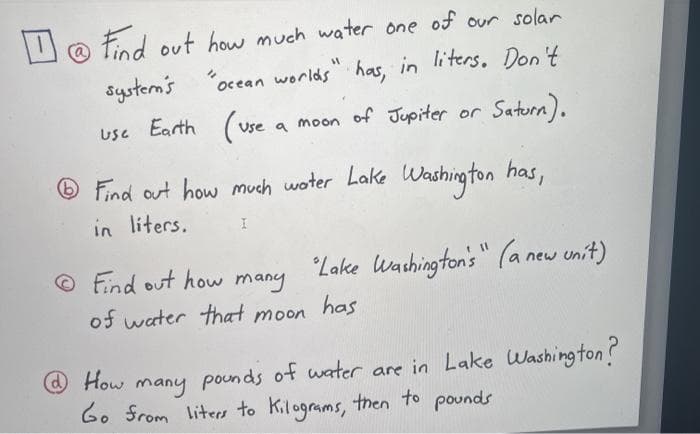 1 (a) Find out how much water one of our solar
system's "ocean worlds" has, in liters. Don't
use Earth (use a moon of Jupiter or Saturn).
(b) Find out how much water Lake Washington has,
in liters.
(c) Find out how many "Lake Washington's" (a new unit)
of water that moon has
(d) How many pounds of water are in Lake Washington?
Go from liters to Kilograms, then to pounds